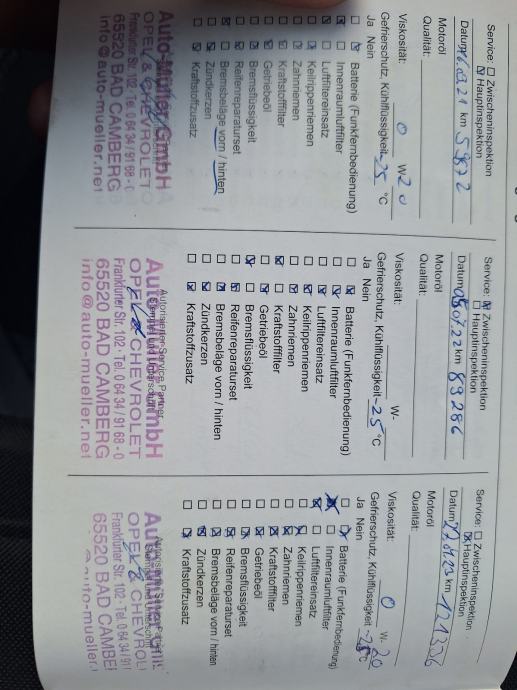 Service: Zwischeninspektion
Hauptinspektion
Datum 16.03.21 km 59872
Motoröl
Qualität:
Viskosität: 0 W 20
Gefrierschutz, Kühlflüssigkeit -25 °C
Ja Nein
Batterie (Funkfernbedienung)
Innenraumluftfilter
Luftfiltereinsatz
Keilrippenriemen
Zahnriemen
Kraftstofffilter
Getriebeöl
Bremsflüssigkeit
Reifenreparaturset
Bremsbeläge vorn / hinten
Zündkerzen
Kraftstoffzusatz
Auto-Müller GmbH
OPEL & CHEVROLET
Frankfurter Str. 102 - Tel. 0 64 34 / 91 68 - 0
65520 BAD CAMBERG
info@auto-mueller.net
Service: Zwischeninspektion
Hauptinspektion
Datum 07.22 km 89286
Motoröl
Qualität:
Viskosität: W-
Gefrierschutz, Kühlflüssigkeit -25 °C
Ja Nein
Batterie (Funkfernbedienung)
Innenraumluftfilter
Luftfiltereinsatz
Keilrippenriemen
Zahnriemen
Kraftstofffilter
Getriebeöl
Bremsflüssigkeit
Reifenreparaturset
Bremsbeläge vorn / hinten
Zündkerzen
Kraftstoffzusatz
Autorisierter Service Partner
Auto-Müller GmbH
OPEL & CHEVROLET
Frankfurter Str. 102 - Tel. 0 64 34 / 91 68 - 0
65520 BAD CAMBERG
info@auto-mueller.net
Service: Zwischeninspektion
Hauptinspektion
Datum km 121336
Motoröl
Qualität:
Viskosität: 0 W- 20
Gefrierschutz, Kühlflüssigkeit -25 °C
Ja Nein
Batterie (Funkfernbedienung)
Innenraumluftfilter
Luftfiltereinsatz
Keilrippenriemen
Zahnriemen
Kraftstofffilter
Getriebeöl
Bremsflüssigkeit
Reifenreparaturset
Bremsbeläge vorn / hinten
Zündkerzen
Kraftstoffzusatz
OPEL & CHEVROL
Frankfurter Str. 102 - Tel. 0 64 34 / 91
65520 BAD CAMBE